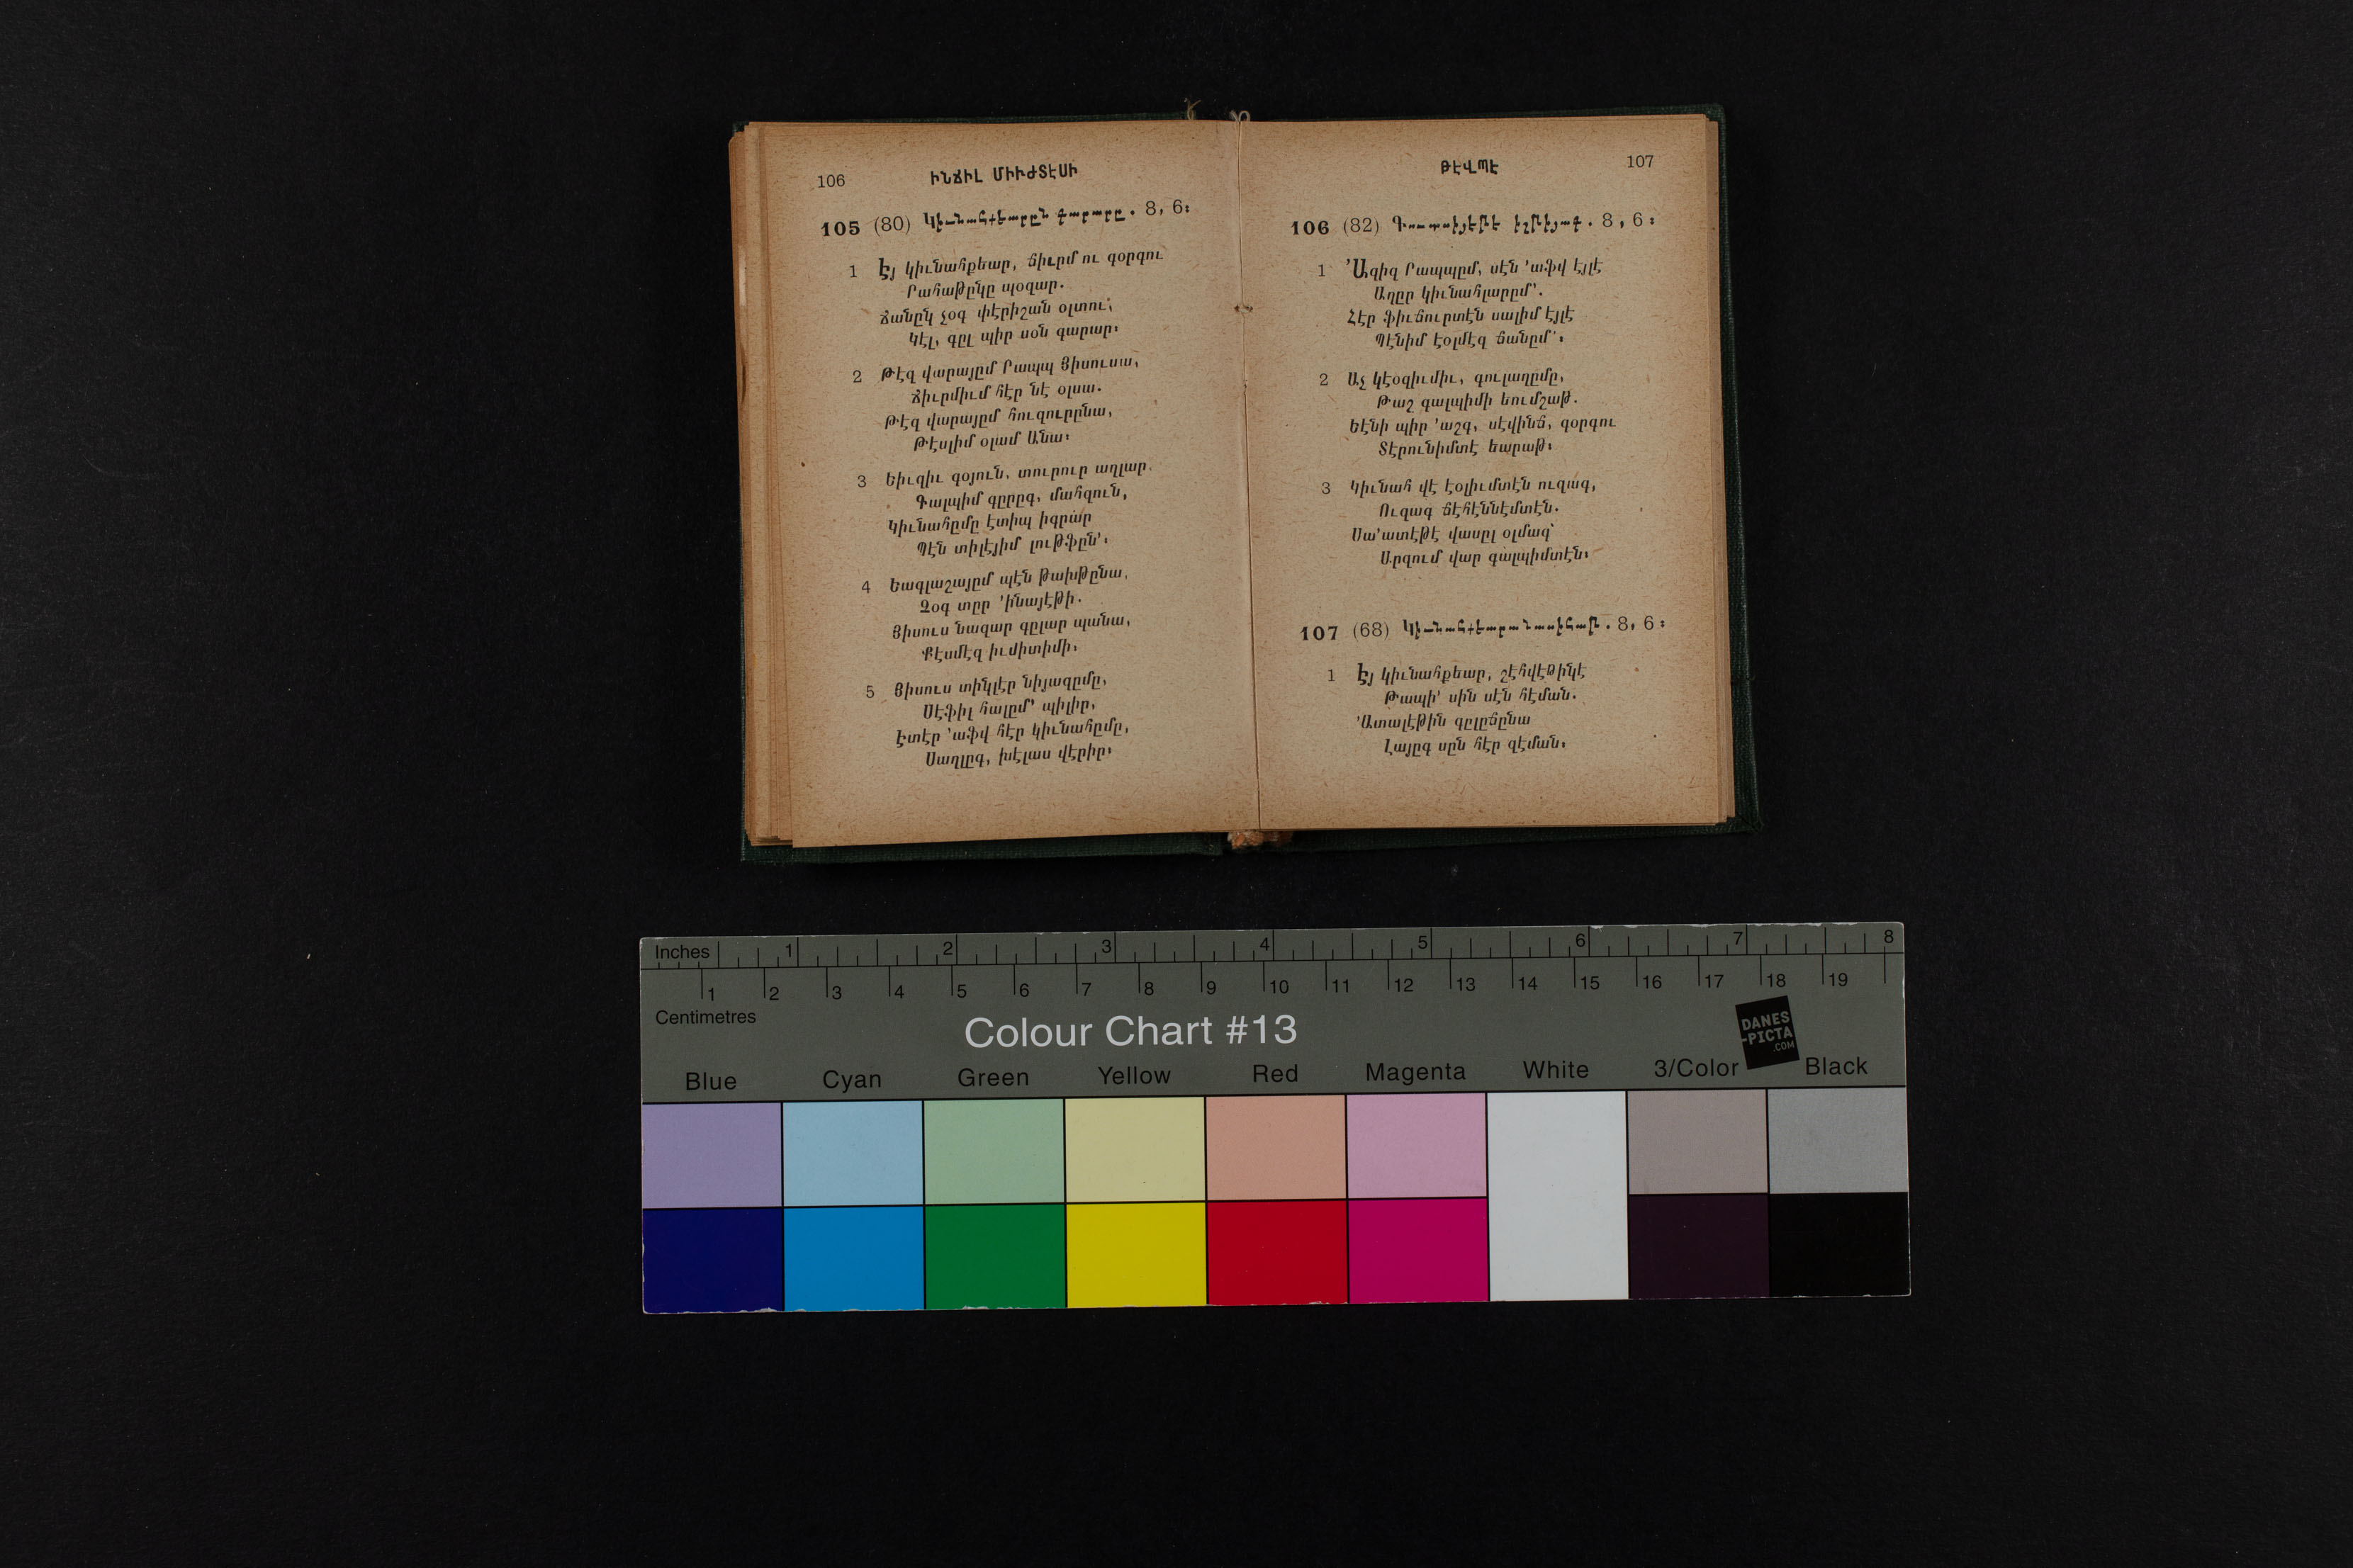 106 ԻՆՃԻԼ ՄԻՒԺՏԷՍԻ
105 (80) Կիւնահքեարըն գարարը. 8, 6։
1 Էյ կիւնահքեար, ճիւրմ ու գօրգու
Րահաթընը պօզար.
Ճանըկ չօգ փէրիշան օլտու,
Կէլ, գըլ պիր սօն գարար։
2 Թէզ վարայըմ Րապպ Յիսուսա,
Ճիւրմիւմ հէր նէ օլսա.
Թէզ վարայըմ հուզուրընա,
Թէսլիմ օլամ Անա։
3 Եիւզիւ գօյուն, տուրուր աղլար,
Գալպիմ գըրըգ, մահզուն,
Կիւնահըմը էտիպ իգրար
Պէն տիլէյիմ լութֆըն՚։
4 Եագլաշայըմ պէն թախթընա,
Չօգ տըր ՚ինայէթի.
Յիսուս նազար գըլար պանա,
Քէսմէզ իւմիտիմի։
5 Յիսուս տինլէր նիյազըմը,
Սէֆիլ հալըմ՚ պիլիր,
Էտէր ՚աֆվ հէր կիւնահըմը,
Սաղլըգ, խէլաս վէրիր։
ԹԷՎՊԷ 107
106 (82) իշթիյագ. 8, 6։
1 ՚Ազիզ Րապպըմ, սէն ՚աֆվ էյլէ
Աղըր կիւնահլարըմ՚.
Հէր ֆիւճուրտէն սալիմ էյլէ
Պէնիմ էօլմէզ ճանըմ՚։
2 Աչ կէօզիւմիւ, գուլաղըմը,
Թաշ գալպիմի եումշաթ.
Եէնի պիր ՚աշգ, սէվինճ, գօրգու
Տէրունիմտէ եարաթ։
3 Կիւնահ վէ էօլիւմտէն ուզագ,
Ուզագ ճէհէննէմտէն.
Սա՚ատէթէ վասըլ օլմագ՝
Արզում վար գալպիմտէն։
107 (68) 8, 6։
1 Էյ կիւնահքեար, շէհվէթինէ
Թապի՚ սին սէն հէման.
՚Ատալէթին գըլըճընա
Լայըգ սըն հէր զէման։
Inches 1 2 3 4 5 6 7 8
1 2 3 4 5 6 7 8 9 10 11 12 13 14 15 16 17 18 19
Centimetres
Colour Chart #13
DANES
-PICTA
.COM
Blue Cyan Green Yellow Red Magenta White 3/Color Black